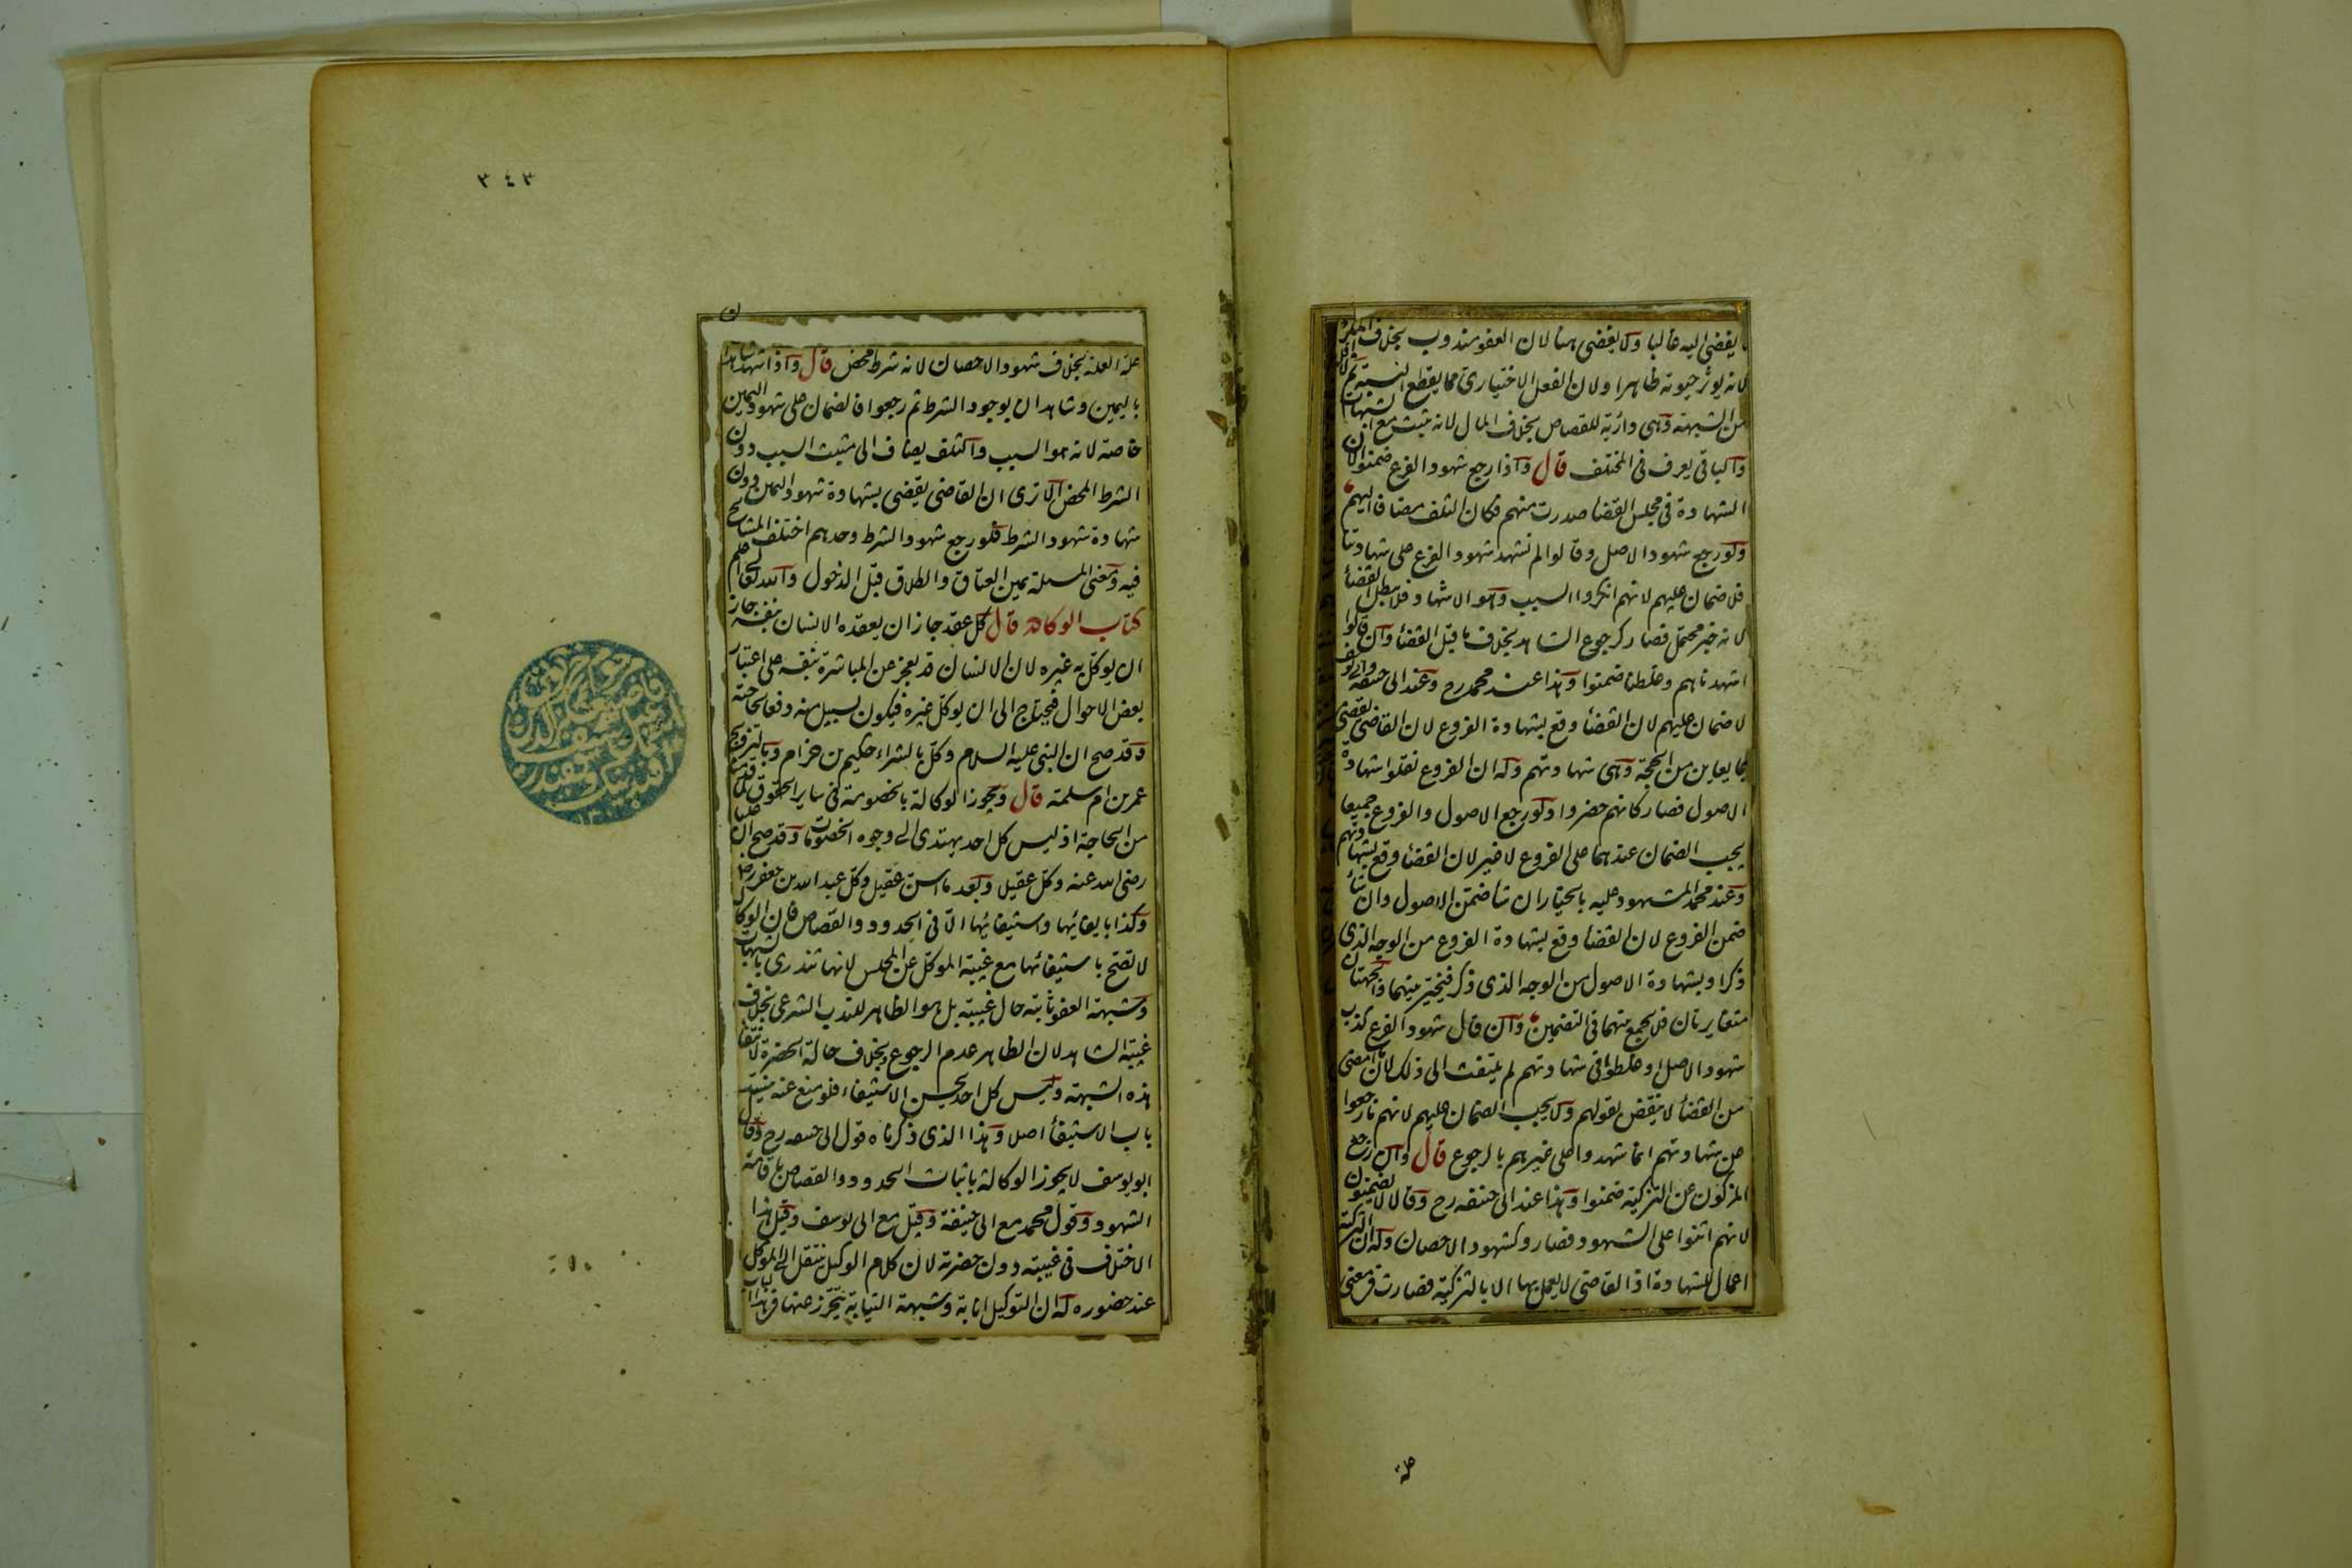 يفضى اليه غالبا ولا يفضى هنا لان العفو مندوب بخلاف المكره
لانه يوثر حيوته ظاهرا ولان الفعل الاختيارى مما يقطع النسبة ثم لا اقل
من الشبهة وهى دارئة للقصاص بخلاف المال لانه يثبت مع الشبهات
والباقى يعرف فى المختلف قال واذا رجع شهود الفرع ضمنوا لان
الشهادة فى مجلس القضا صدرت منهم فكان التلف مضافا اليهم
ولو رجع شهود الاصل وقالوا لم نشهد شهود الفرع على شهادتنا
فلا ضمان عليهم لانهم انكروا السبب وهو الاشهاد فلا يبطل القضأ
لانه خبر محتمل فصار كرجوع الشاهد بخلاف ما قبل القضأ وان قالوا
اشهدناهم وغلطنا ضمنوا وهذا عند محمد رح وعند ابى حنيفه وابى يوسف
لا ضمان عليهم لان القضأ وقع بشهادة الفروع لان القاضى يقضى
بما يعاين من الحجة وهى شهادتهم وله ان الفروع نقلوا شهادة
الاصول فصار كانهم حضروا ولو رجع الاصول والفروع جميعا
يجب الضمان عندهما على الفروع لا غير لان القضأ وقع بشهادتهم
وعند محمد المشهود عليه بالخيار ان شا ضمن الاصول وان شأ
ضمن الفروع لان القضأ وقع بشهادة الفروع من الوجه الذى
ذكرا وبشهادة الاصول من الوجه الذى ذكر فيتخير بينهما والجهتان
متغايرتان فلا يجمع بينهما فى التضمين وان قال شهود الفرع كذب
شهود الاصل او غلطوا فى شهادتهم لم يلتفت الى ذلك لان ما امضى
من القضأ لا ينقض بقولهم ولا يجب الضمان عليهم لانهم ما رجعوا
عن شهادتهم انما شهدوا على غيرهم بالرجوع قال وان رجع
المزكون عن التزكية ضمنوا وهذا عند ابى حنيفه رح وقالا لا يضمنون
لانهم اثنوا على الشهود فصاروا كشهود الاحصان وله ان التزكية
اعمال للشهادة اذ القاضى لا يعمل بها الا بالتزكية فصارت فى معنى
علة
٣٤٣
علة العلة بخلاف شهود الاحصان لانه شرط محض قال واذا شهد شاهدان
باليمين وشاهدان بوجود الشرط ثم رجعوا فالضمان على شهود اليمين
خاصة لانه هو السبب والتلف يضاف الى مثبت السبب دون
الشرط المحض الا ترى ان القاضى يقضى بشهادة شهود اليمين دون
شهادة شهود الشرط فلو رجع شهود الشرط وحدهم اختلف المشايخ
فيه ومعنى المسلة يمين العتاق والطلاق قبل الدخول والله تعالى اعلم
كتاب الوكالة قال كل عقد جاز ان يعقده الانسان بنفسه جاز
ان يوكل به غيره لان الانسان قد يعجز عن المباشرة بنفسه على اعتبار
بعض الاحوال فيحتاج الى ان يوكل غيره فيكون بسبيل منه دفعا لحاجته
وقد صح ان النبى عليه السلام وكل بالشراء حكيم بن حزام وبالتزويج
عمر بن ام سلمة قال ويجوز الوكالة بالخصومة فى ساير الحقوق لما قدمنا
من الحاجة اذ ليس كل احد يهتدى الى وجوه الخصومات وقد صح ان عليا
رضى الله عنه وكل عقيلا وبعد ما اسن عقيل وكل عبد الله بن جعفر رضه
وكذا بايفائها واستيفائها الا فى الحدود والقصاص فان الوكالة
لا تصح باستيفائها مع غيبة الموكل عن المجلس لانها تندرى بالشبهات
وشبهة العفو ثابتة حال غيبته بل هو الظاهر للندب الشرعى بخلاف
غيبة الشاهد لان الظاهر عدم الرجوع وبخلاف حالة الحضرة لانتفا
هذه الشبهة وليس كل احد يحسن الاستيفاء فلو منع عنه ينسد
باب الاستيفأ اصلا وهذا الذى ذكرناه قول ابى حنيفه رح وقال
ابو يوسف لا يجوز الوكالة باثبات الحدود والقصاص باقامة
الشهود وقول محمد مع ابى حنيفة وقيل مع ابى يوسف وقيل هذا
الاختلاف فى غيبته دون حضرته لان كلام الوكيل ينتقل الى الموكل
عند حضوره له ان التوكيل انابة وشبهة النيابة يتحرز عنها فى هذا الباب